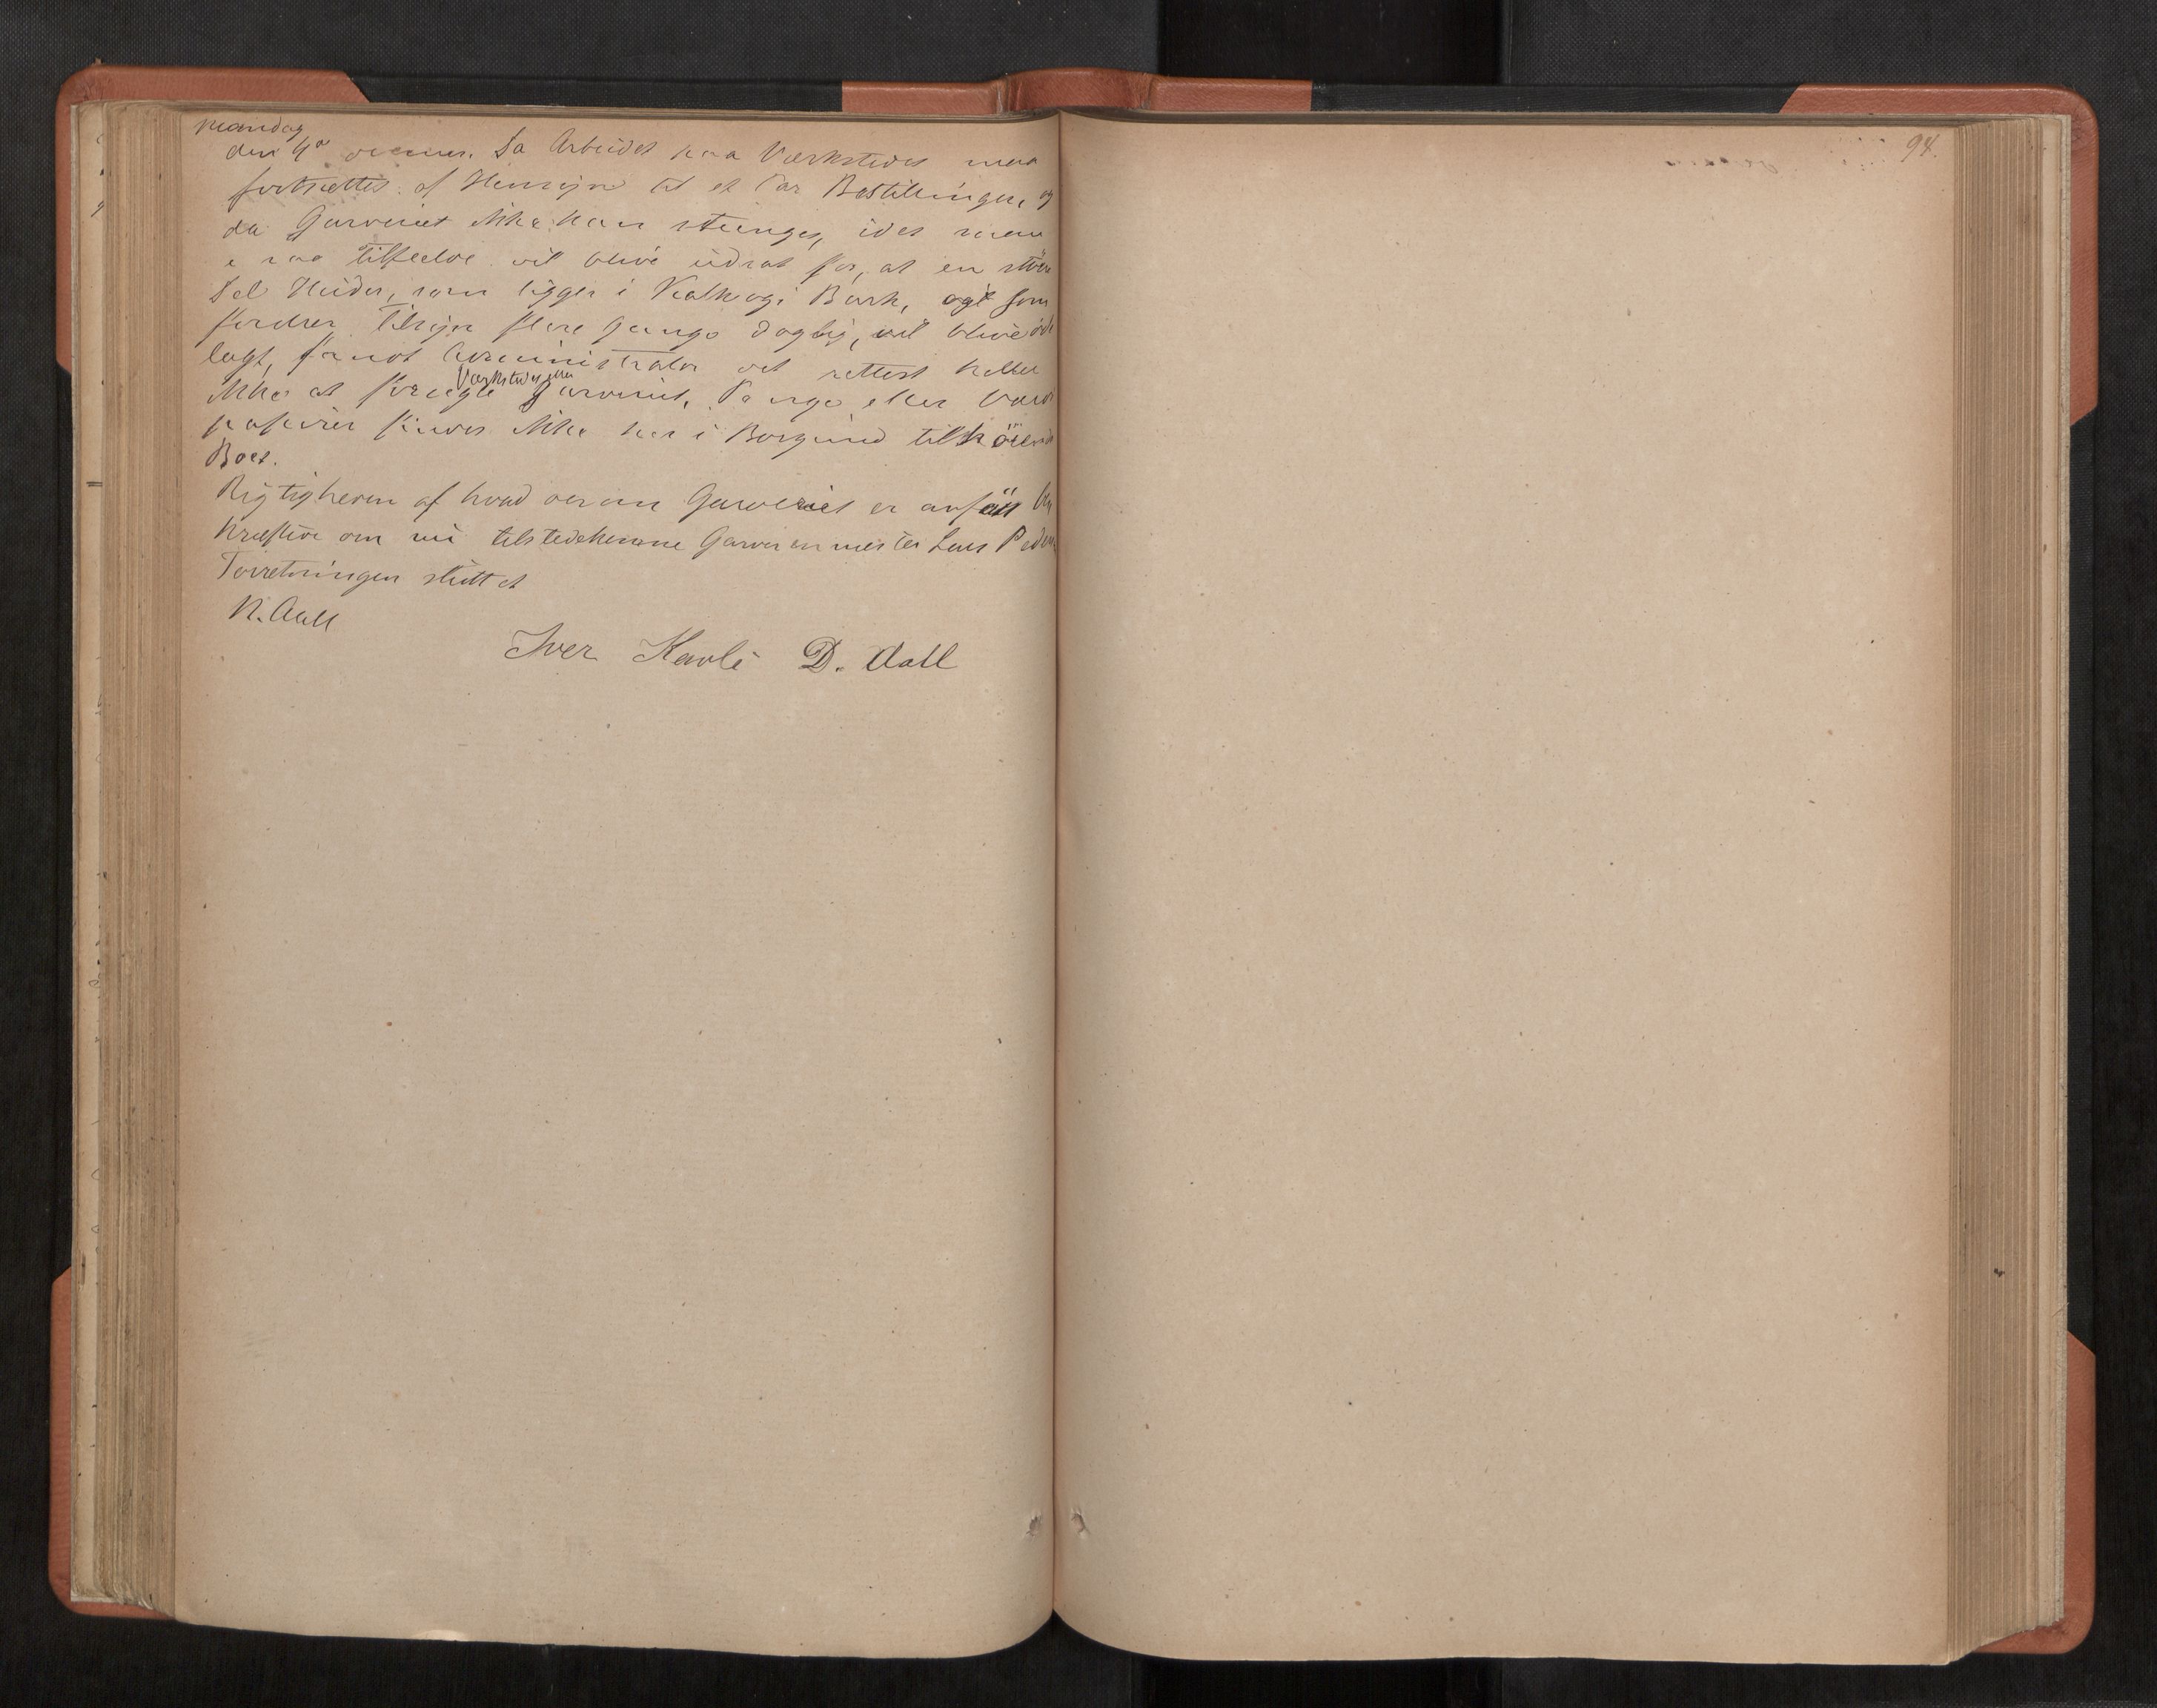 Mandag
den 4de dennes. Da Arbeidet paa Værkstedet maa
fortsættes af Hensyn til et Par Bestillinger, og
da Garveriet ikke kan stænges, idet man
i saa Tilfælde vil blive udsat for, at en större
Del Huder, som ligger i Kalk og i Bark, og som
fordrer Tilsyn flere Gange daglig, vil blive öde
lagt, fandt Administrator det rettest heller
ikke at forsegle Værkstedet eller Garveriet. Penge eller Værdi
papirer findes ikke her i Borgund tilhörende
Boet.
Rigtigheden af hvad der om Garveriet er anfört be
kræftede den nu tilstedekomne Garver Lars
Forretningen sluttet
N. Aall
Iver Kavli D. Aall
94.